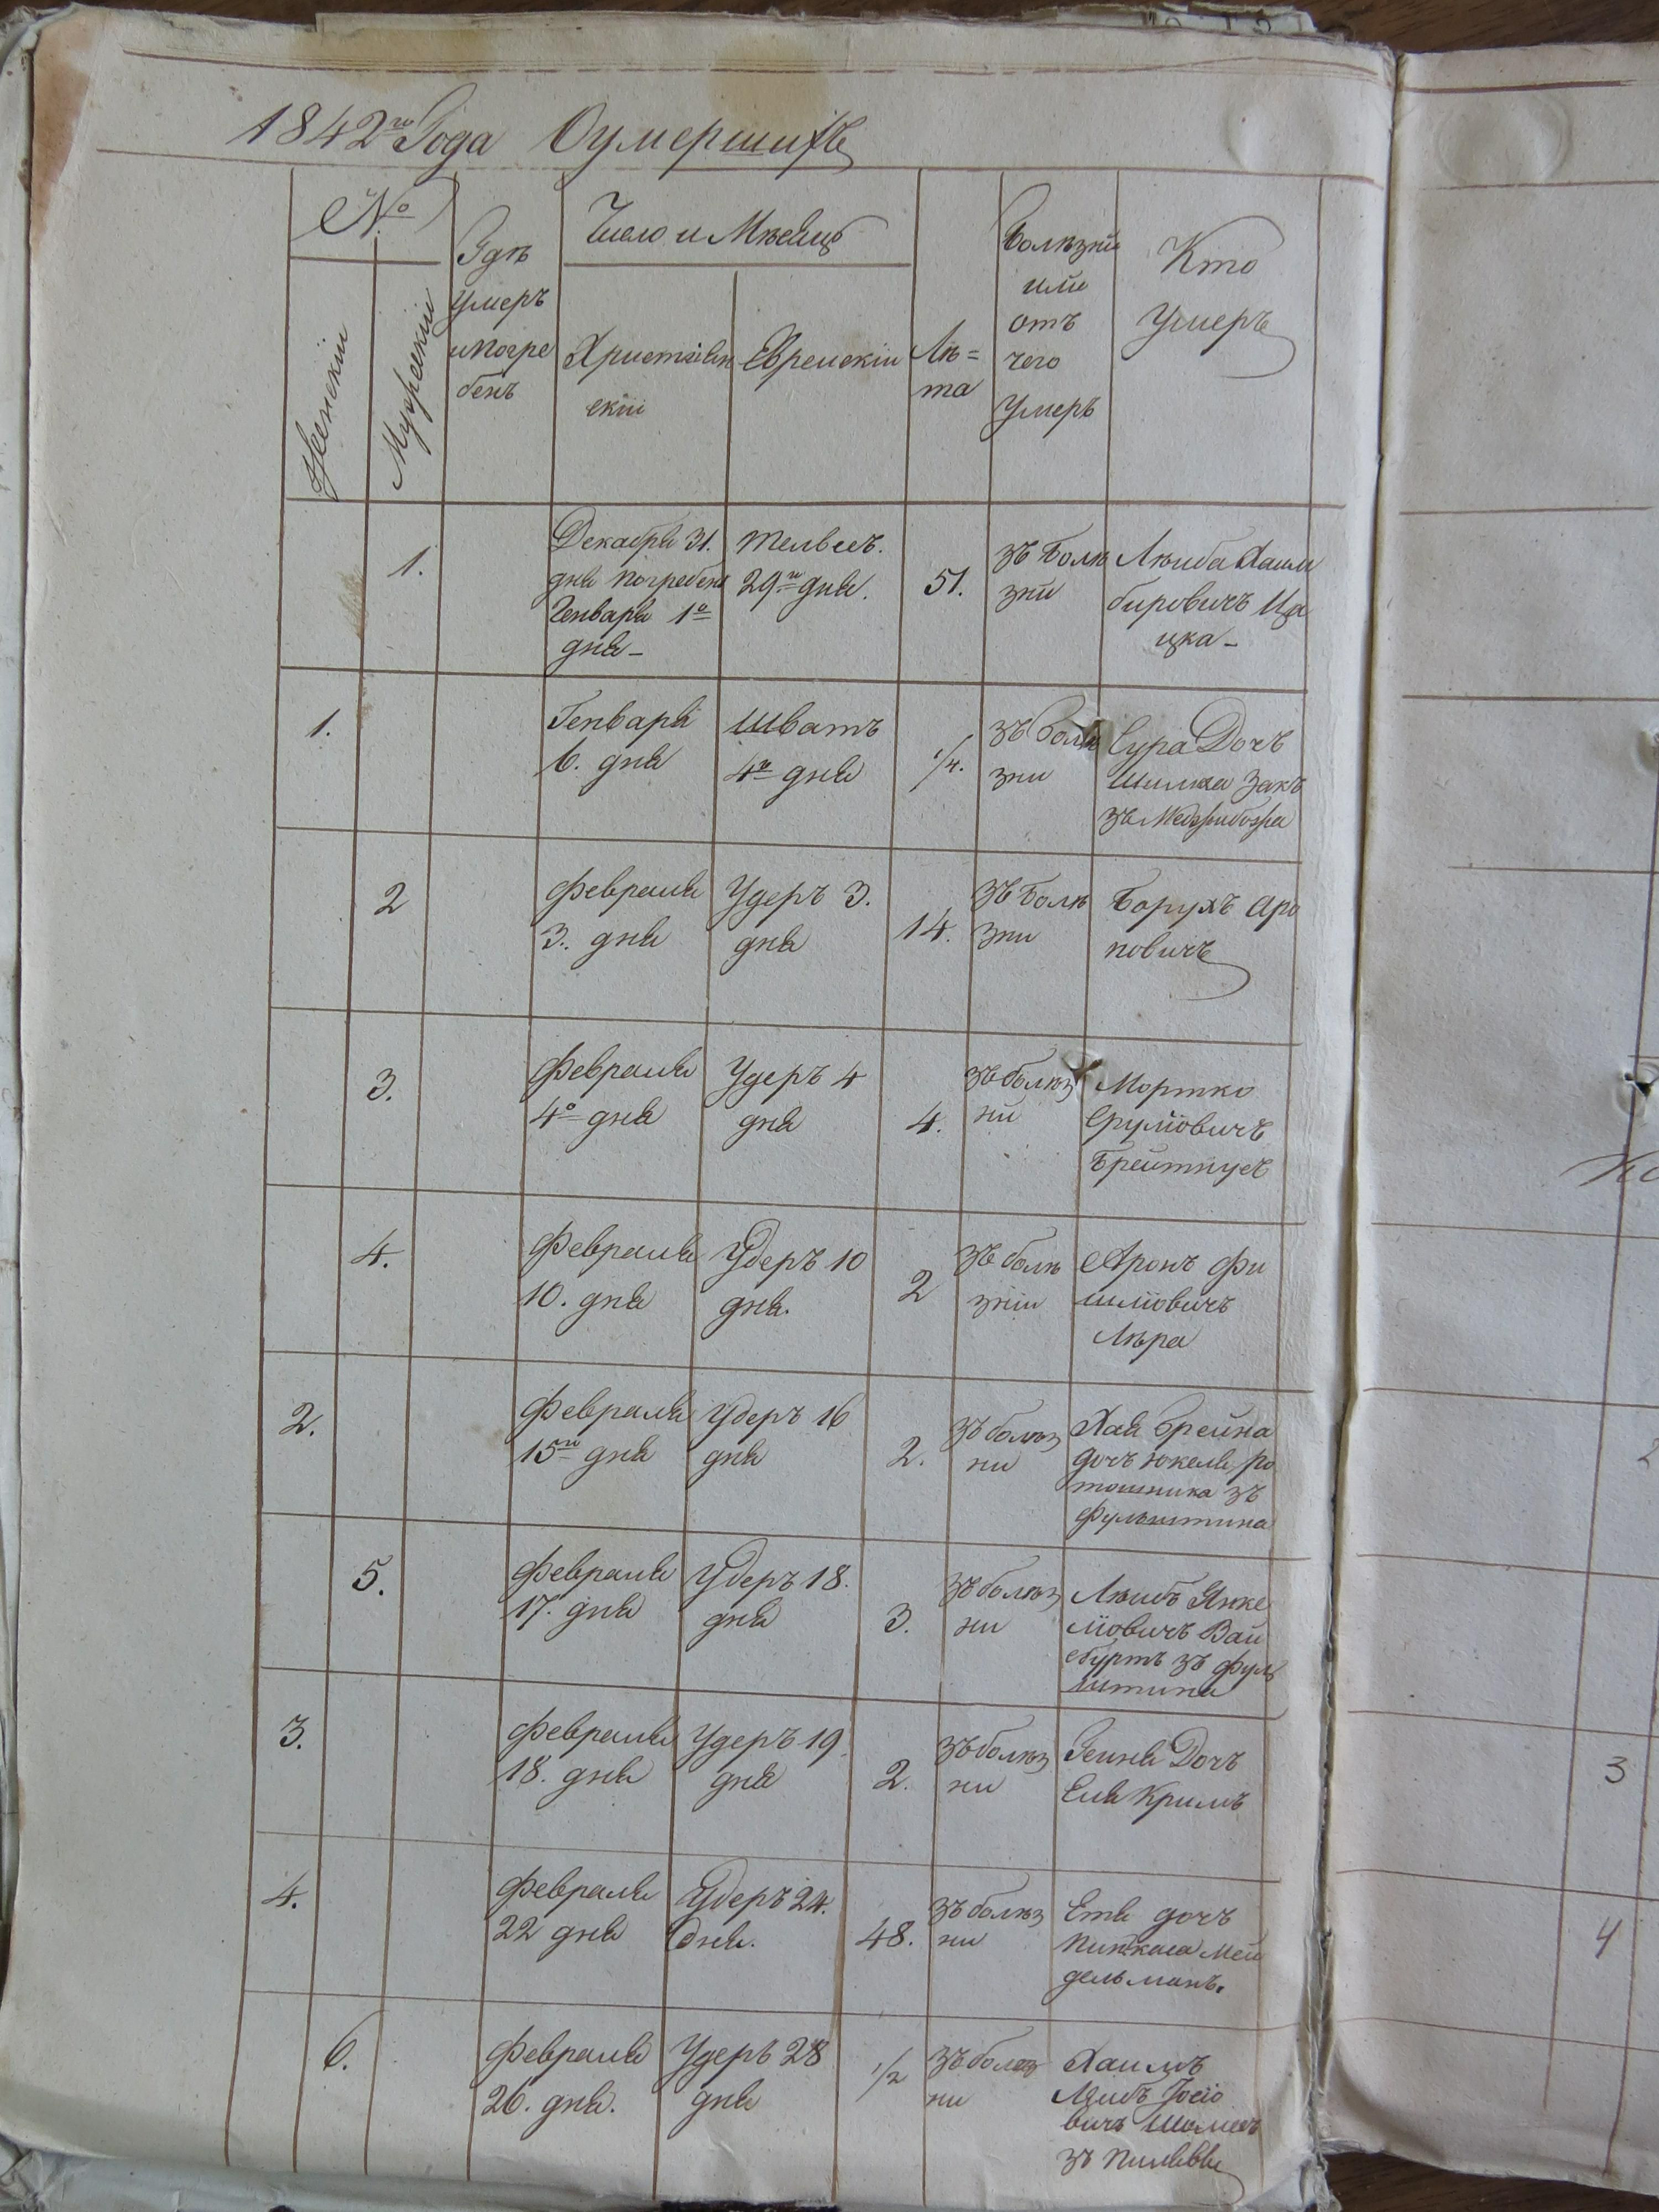 1842го Года Оумершихъ
№
Женскій
Мужескій
Гдѣ
умеръ
и погре
бенъ
Число и Мѣсяцъ
Христіян
скій
Еврейскій
Лѣ=
та
Болѣзни
или
отъ
чего
умеръ
Кто
умеръ
1.
Декабря 31.
дня погребенъ
Генваря 1о
дня –
Телвесъ.
29го дня.
51.
зъ болѣ
зни
Лѣйба Хаим
бировичъ Ца
цка –
1.
Генваря
6. дня
Шватъ
4го дня
1/4.
зъ болѣ
зни
Сура Дочъ
Шилка Закъ
зъ Меджибожа
2
Февраля
3. дня
Удеръ 3.
дня
14.
зъ болѣ
зни
Борухъ Аро
новичъ
3.
Февраля
4о дня
Удеръ 4
дня
4.
зъ болѣз
ни
Мортко
Сруліовичъ
Брейтпусъ
4.
Февраля
10. дня
Удеръ 10
дня.
2
зъ болѣ
зни
Аронъ Фи
шліовичъ
Лѣра
2.
Февраля
15го дня
Удеръ 16
дня
2.
зъ болѣз
ни
Хая Брейна
дочъ Юкеля ро
тошника зъ
Фульштина
5.
Февраля
17. дня
Удеръ 18.
дня
3.
зъ болѣз
ни
Лѣйбъ Янке
ліовичъ Вай
сбуртъ зъ Фуль
штина
3.
Февраля
18. дня
Удеръ 19.
дня
2.
зъ болѣз
ни
Геня Дочъ
Еля Кримъ
4.
Февраля
22 дня
Удеръ 24.
дня.
48.
зъ болѣз
ни
Етя дочъ
Пинкаса Мей
дельманъ.
6.
Февраля
26. дня.
Удеръ 28
дня
1/2
зъ болѣз
ни
Хаимъ
Лейбъ Іосіо
вичъ Шамесъ
зъ Пилявы
3
4